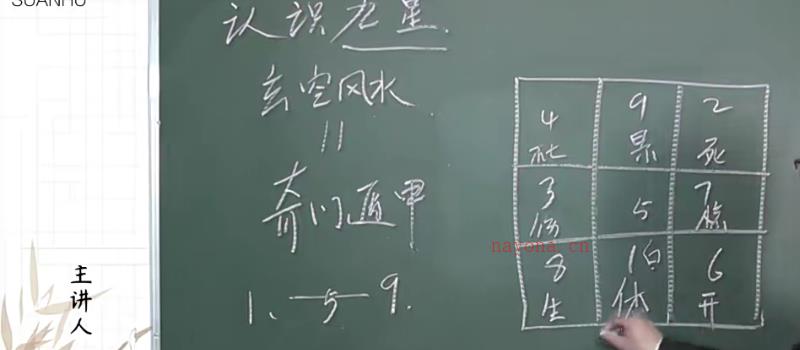 SUANHU
认识九星.
玄空风水
||
奇门遁甲
1、—5—9.
主讲人
4 9 2
杜 景 死
3 5 7
伤 惊
nayona.cn
8 1白 6
生 休 开